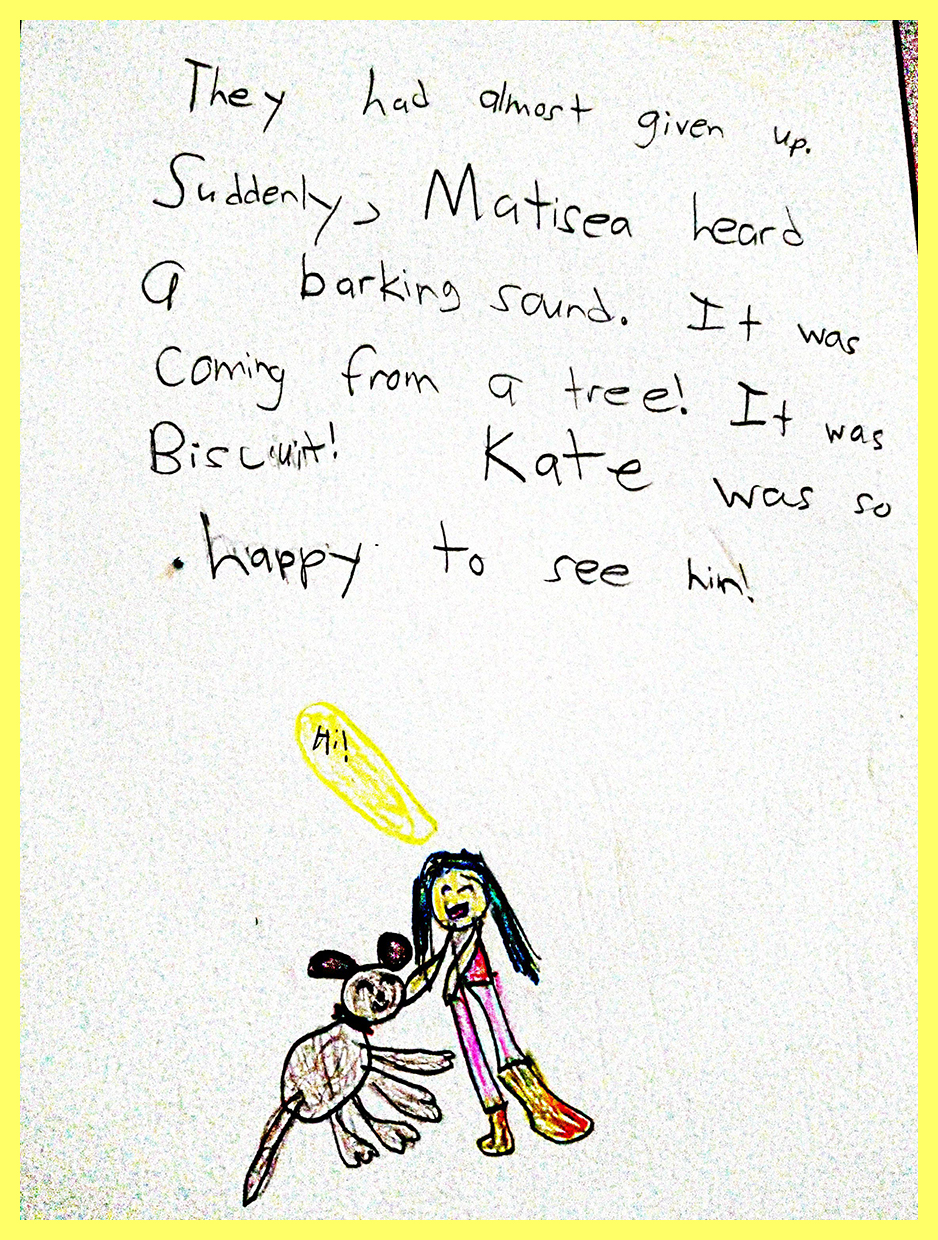 They had almost given up.
Suddenly, Matisea heard
a barking sound. It was
Coming from a tree! It was
Biscuit! Kate was so
happy to see him!
Hi!